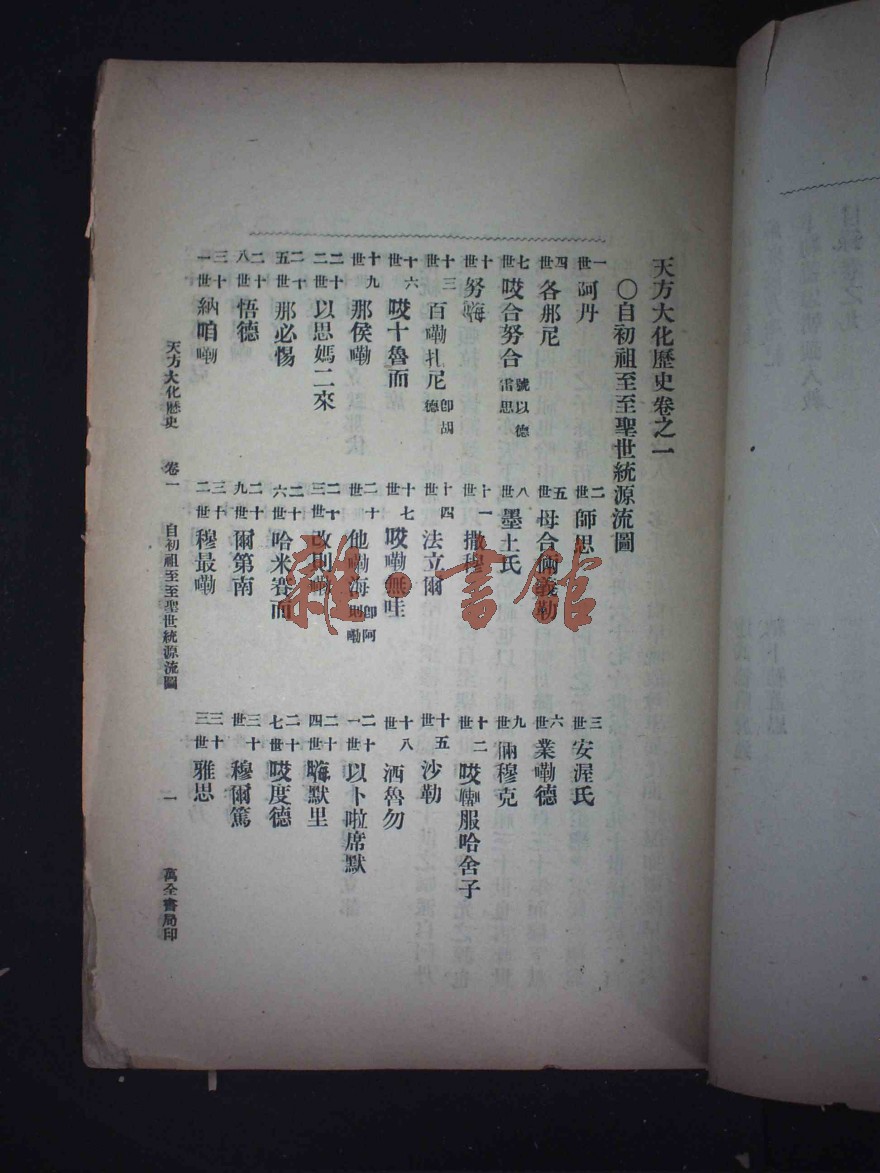 天方大化歷史卷之一
○自初祖至至聖世統源流圖
一世 阿丹 二世 師思 三世 安渥氏
四世 各那尼 五世 母合倆義勒 六世 業嘞德
七世 哎合努合 號以德雷思 八世 墨土氏 九世 倆穆克
十世 努海 十一世 撒穆 十二世 服哈舍子
十三世 百嘞扎尼 卽胡德 十四世 法立爾 十五世 沙勒
十六世 哎十魯而 十七世 哎嘞無哇 十八世 洒魯勿
十九世 那侯嘞 二十世 他嘞海 卽阿則嘞 二十一世 以卜啦席默
二十二世 以思媽二來 二十三世 改則嘞 二十四世 嗨默里
二十五世 那必惕 二十六世 哈米賽而 二十七世 哎度德
二十八世 悟德 二十九世 爾第南 三十世 穆爾篤
三十一世 納咱嘞 三十二世 穆最嘞 三十三世 雅思
天方大化歷史 卷一 自初祖至至聖世統源流圖 一 萬全書局印
雜·書館